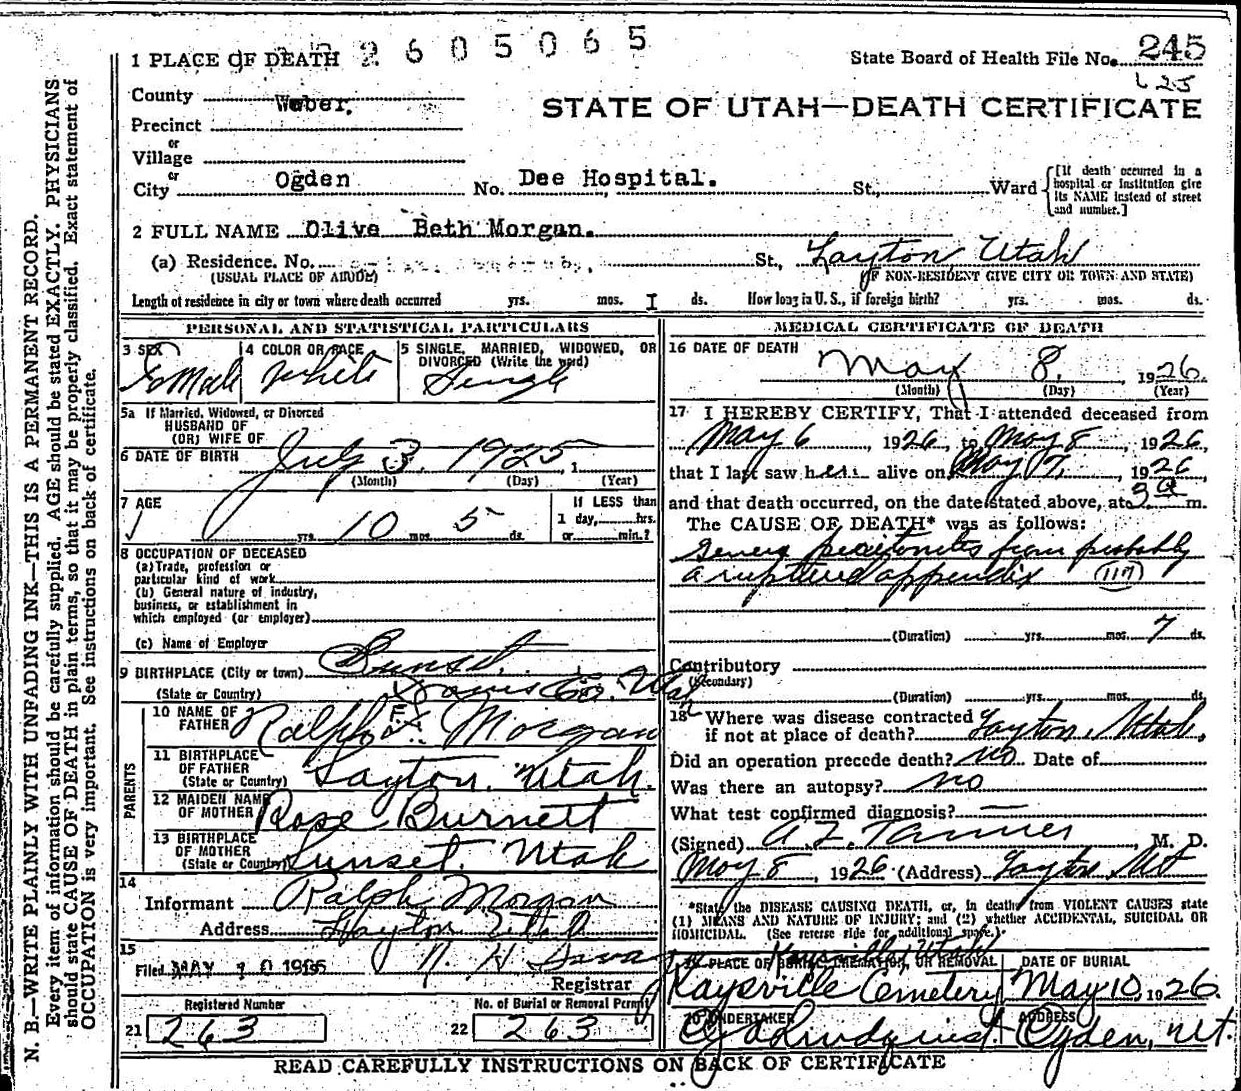 2605065
1 PLACE OF DEATH
State Board of Health File No. 245
County Weber.
STATE OF UTAH—DEATH CERTIFICATE
Precinct
or
Village
or
City Ogden No. Dee Hospital. St., Ward
[If death occurred in a hospital or institution give its NAME instead of street and number.]
2 FULL NAME Olive Beth Morgan.
(a) Residence. No. St., Layton Utah
(USUAL PLACE OF ABODE) (IF NON-RESIDENT GIVE CITY OR TOWN AND STATE)
Length of residence in city or town where death occurred yrs. mos. I ds. How long in U. S., if foreign birth? yrs. mos. ds.
PERSONAL AND STATISTICAL PARTICULARS
3 SEX 4 COLOR OR RACE 5 SINGLE, MARRIED, WIDOWED, OR
DIVORCED (Write the word)
Female White Single
5a If Married, Widowed, or Divorced
HUSBAND OF
(OR) WIFE OF
6 DATE OF BIRTH July 3, 1925, 1
(Month) (Day) (Year)
7 AGE If LESS than
yrs. 10 mos. 5 ds. 1 day, hrs.
or min.?
8 OCCUPATION OF DECEASED
(a) Trade, profession or
particular kind of work
(b) General nature of industry,
business, or establishment in
which employed (or employer)
(c) Name of Employer
9 BIRTHPLACE (City or town) Sunset
(State or Country) Davis Co. Utah
PARENTS
10 NAME OF
FATHER Ralph Morgan
11 BIRTHPLACE
OF FATHER
(State or Country) Layton, Utah.
12 MAIDEN NAME
OF MOTHER Rose Burnett
13 BIRTHPLACE
OF MOTHER
(State or Country) Sunset, Utah
14
Informant Ralph Morgan
Address Layton Utah
15
Filed MAY 10 1926
Registrar
Registered Number No. of Burial or Removal Permit
21 263 22 263
MEDICAL CERTIFICATE OF DEATH
16 DATE OF DEATH
May 8. 1926.
(Month) (Day) (Year)
17 I HEREBY CERTIFY, That I attended deceased from
May 6, 1926, to May 8, 1926,
that I last saw her alive on May 7, 1926,
and that death occurred, on the date stated above, at 3 a m.
The CAUSE OF DEATH* was as follows:
peritonitis from probably
a ruptured appendix (117)
(Duration) yrs. mos. 7 ds.
Contributory
(Secondary)
(Duration) yrs. mos. ds.
18 Where was disease contracted
if not at place of death? Layton, Utah,
Did an operation precede death? no Date of
Was there an autopsy? no
What test confirmed diagnosis? —
(Signed) A. Z. Tanner, M. D.
May 8, 1926 (Address) Layton Ut
*State the DISEASE CAUSING DEATH, or, in deaths from VIOLENT CAUSES state
(1) MEANS AND NATURE OF INJURY; and (2) whether ACCIDENTAL, SUICIDAL OR
HOMICIDAL. (See reverse side for additional space.)
Kaysville, Utah
19 PLACE OF BURIAL, CREMATION, OR REMOVAL DATE OF BURIAL
Kaysville Cemetery May 10, 1926.
20 UNDERTAKER ADDRESS
Lindquist Ogden, Ut.
READ CAREFULLY INSTRUCTIONS ON BACK OF CERTIFICATE
N. B.—WRITE PLAINLY WITH UNFADING INK—THIS IS A PERMANENT RECORD.
Every item of information should be carefully supplied. AGE should be stated EXACTLY. PHYSICIANS
should state CAUSE OF DEATH in plain terms, so that it may be properly classified. Exact statement of
OCCUPATION is very important. See instructions on back of certificate.